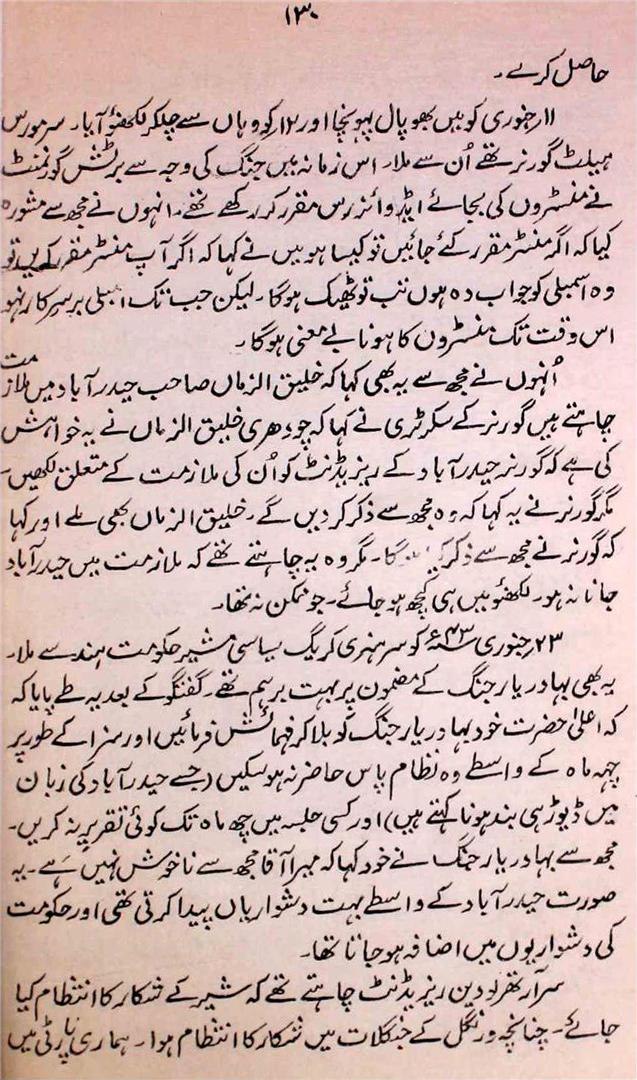 ۱۳۰
حاصل کرے۔
۱۱ر جنوری کو میں بھوپال پہونچا اور ۱۲ر کو وہاں سے چلکر لکھنؤ آیا۔ سر مورس
ہیلٹ گورنر تھے اُن سے ملا۔ اس زمانہ میں جنگ کی وجہ سے برٹش گورنمنٹ
نے منسٹروں کی بجائے ایڈوائزرس مقرر کر رکھے تھے۔ انہوں نے مجھ سے مشورہ
کیا کہ اگر منسٹر مقرر کئے جائیں تو کیسا ہو میں نے کہا کہ اگر آپ منسٹر مقرر کریں تو
وہ اسمبلی کو جواب دہ ہوں تب تو ٹھیک ہوگا۔ لیکن جب تک اسمبلی برسرکار نہو
اس وقت تک منسٹروں کا ہونا بے معنی ہوگا۔
اُنہوں نے مجھ سے یہ بھی کہا کہ خلیق الزماں صاحب حیدرآباد میں ملازمت
چاہتے ہیں گورنر کے سکرٹری نے کہا کہ چودھری خلیق الزماں نے یہ خواہش
کی ہے کہ گورنر حیدرآباد کے ریزیڈنٹ کو اُن کی ملازمت کے متعلق لکھیں۔
مگر گورنر نے یہ کہا کہ وہ مجھ سے ذکر کر دیں گے۔ خلیق الزماں بھی ملے اور کہا
کہ گورنر نے مجھ سے ذکر کیا ہوگا۔ مگر وہ یہ چاہتے تھے کہ ملازمت میں حیدرآباد
جانا نہ ہو۔ لکھنؤ میں ہی کچھ ہو جائے۔ جو ممکن نہ تھا۔
۲۳ر جنوری ۴۳ء کو سر ہنری کریگ سیاسی مشیر حکومت ہند سے ملا۔
یہ بھی بہادر یار جنگ کے مضمون پر بہت برہم تھے۔ گفتگو کے بعد یہ طے پایا کہ
کہ اعلیٰ حضرت خود بہادر یار جنگ کو بلا کر فہمائش فرمائیں اور سزا کے طور پر
چھہ ماہ کے واسطے وہ نظام پاس حاضر نہ ہو سکیں (جسے حیدرآباد کی زبان
میں ڈیوڑھی بند ہونا کہتے ہیں) اور کسی جلسہ میں چھ ماہ تک کوئی تقریر نہ کریں۔
مجھ سے بہادر یار جنگ نے خود کہا کہ میرا آقا مجھ سے ناخوش نہیں ہے۔ یہ
صورت حیدرآباد کے واسطے بہت دشواریاں پیدا کرتی تھی اور حکومت
کی دشواریوں میں اضافہ ہو جاتا تھا۔
سر آرتھر لودین ریزیڈنٹ چاہتے تھے کہ شیر کے شکار کا انتظام کیا
جائے۔ چنانچہ ورنگل کے جنگلات میں شکار کا انتظام ہوا۔ ہماری پارٹی میں